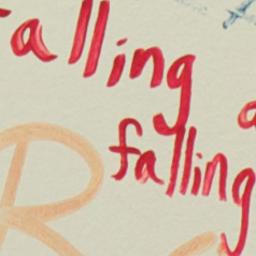 alling
falling
R